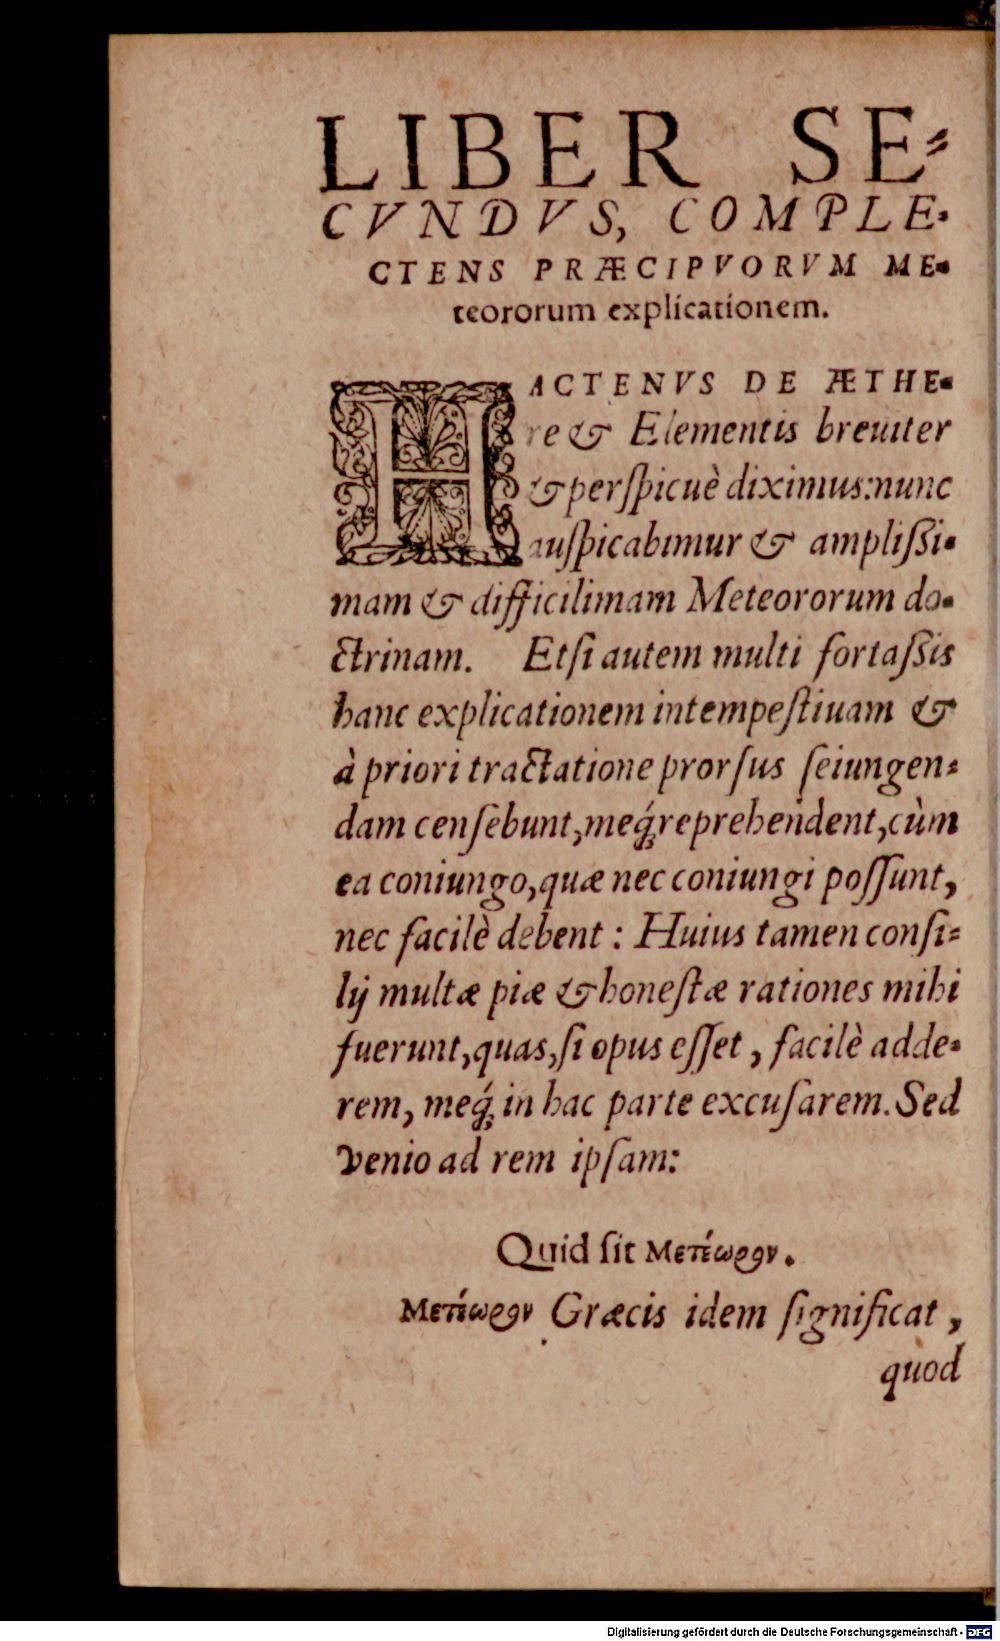 LIBER SE-
CVNDVS, COMPLE-
CTENS PRÆCIPVORVM ME-
teororum explicationem.
HACTENVS DE ÆTHE-
re & Elementis breuiter
& perſpicuè diximus: nunc
auſpicabimur & ampliſsi-
mam & difficilimam Meteororum do-
ctrinam. Etſi autem multi fortaſsis
hanc explicationem intempeſtiuam &
à priori tractatione prorſus ſeiungen-
dam cenſebunt, meq́; reprehendent, cùm
ea coniungo, quæ nec coniungi poſſunt,
nec facilè debent : Huius tamen conſi-
lij multæ piæ & honeſtæ rationes mihi
fuerunt, quas, ſi opus eſſet, facilè adde-
rem, meq́; in hac parte excuſarem. Sed
venio ad rem ipſam:
Quid ſit Μετέωρον.
Μετέωρον Græcis idem ſignificat,
quod
Digitalisierung gefördert durch die Deutsche Forschungsgemeinschaft - DFG